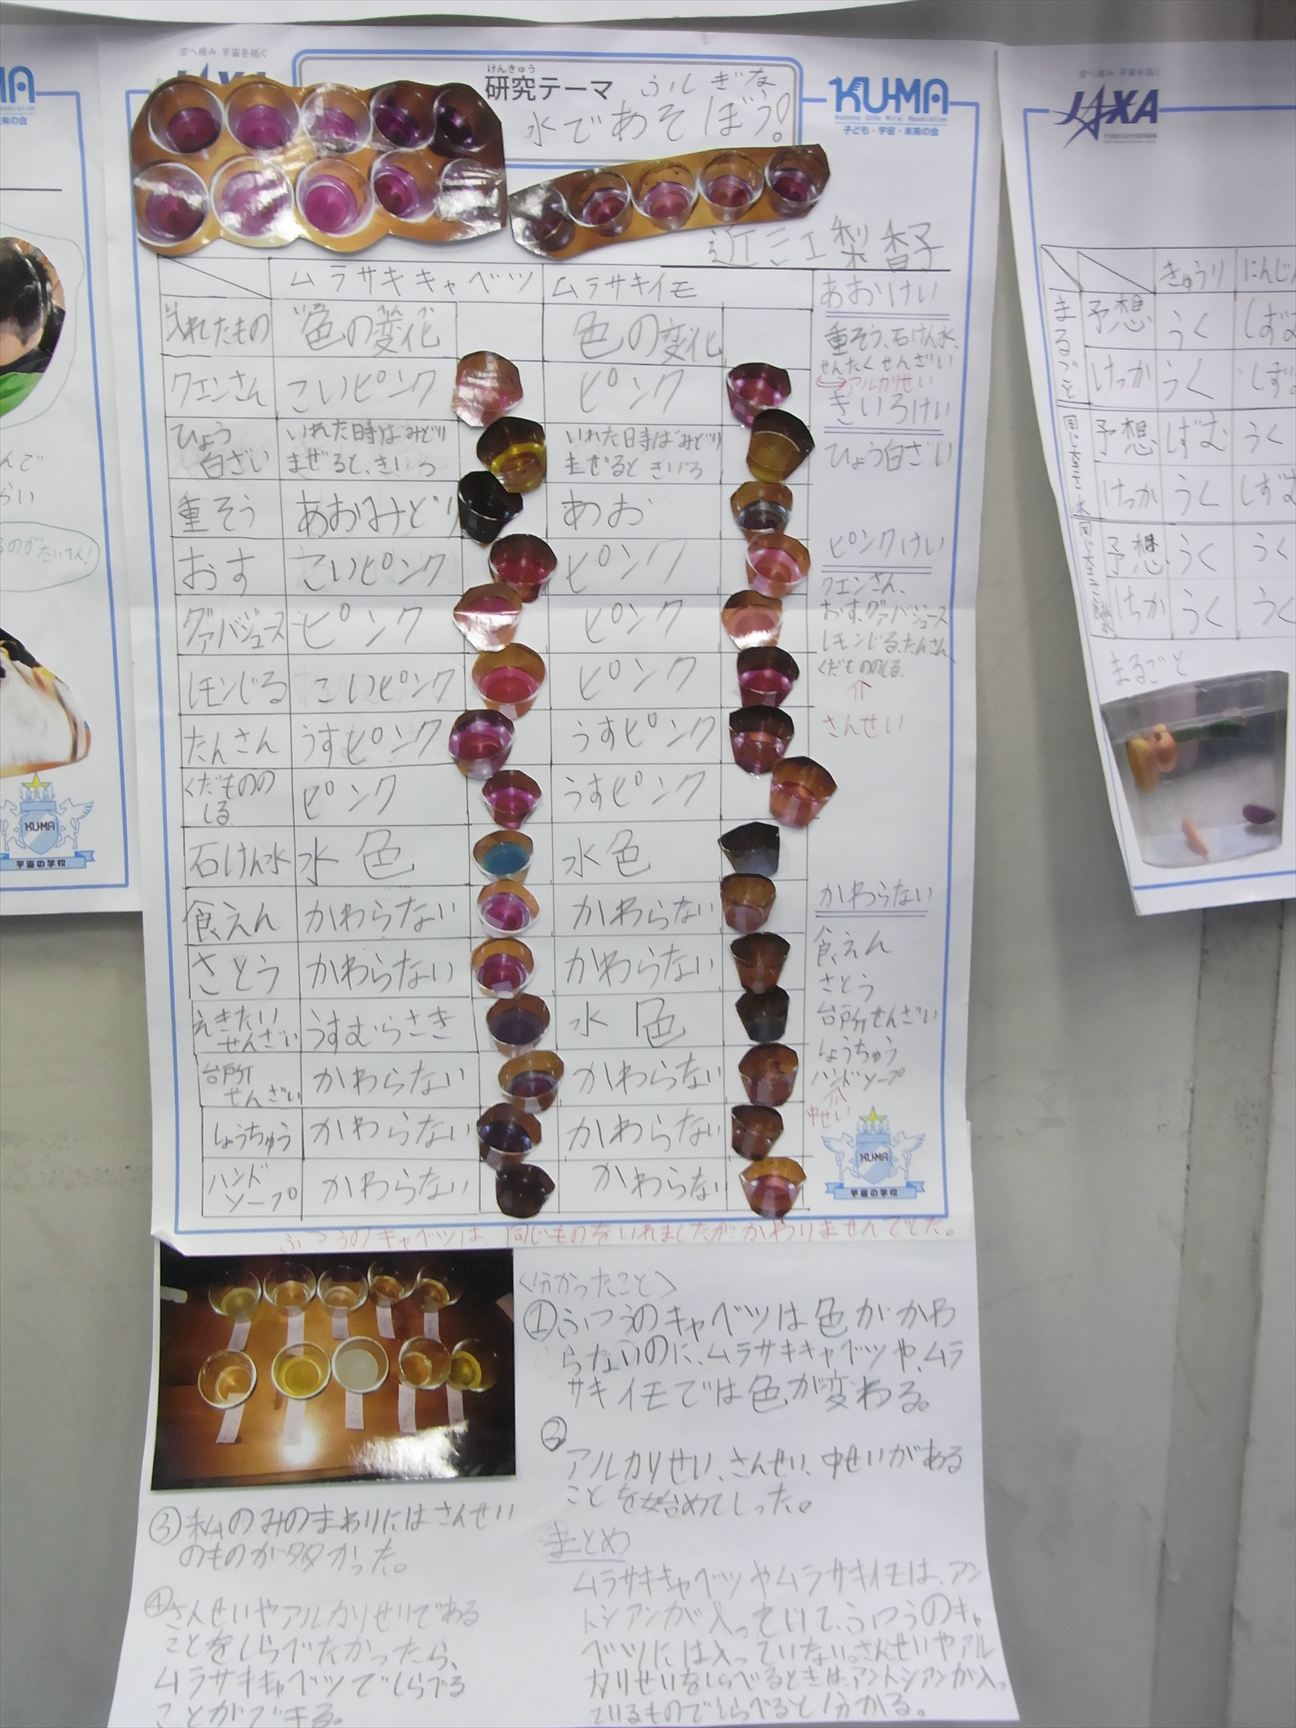 空へ挑み、宇宙を拓く
けんきゅう
研究テーマ
ふしぎな
水であそぼう!
KU-MA
子ども・宇宙・未来の会
近江梨香子
ムラサキキャベツ ムラサキイモ
入れたもの 色の変化 色の変化
クエンさん こいピンク ピンク
ひょう白ざい いれた時はみどり まぜると、きいろ いれた日時はみどり まぜると きいろ
重そう あおみどり あお
おす こいピンク ピンク
グァバジュース ピンク ピンク
レモンじる こいピンク ピンク
たんさん うすピンク うすピンク
くだもののしる ピンク うすピンク
石けん水 水色 水色
食えん かわらない かわらない
さとう かわらない かわらない
えきたいせんざい うすむらさき 水色
台所せんざい かわらない かわらない
しょうちゅう かわらない かわらない
ハンドソープ かわらない かわらない
あおけい
重そう、石けん水、
せんたくせんざい
アルカリせい
きいろけい
ひょう白ざい
ピンクけい
クエンさん、
おす、グァバジュース
レモンじる、たんさん、
くだもののしる、
さんせい
かわらない
食えん
さとう
台所せんざい
しょうちゅう
ハンドソープ
中せい
KU-MA
宇宙の学校
ふつうのキャベツは 同じものをいれましたが かわりませんでした。
<分かったこと>
①ふつうのキャベツは色がかわ
らないのに、ムラサキキャベツや、ムラ
サキイモでは色が変わる。
②
アルカリせい、さんせい、中せいがある
ことを始めてしった。
③私のみのまわりにはさんせい
のものが多かった。
④さんせいやアルカリせいである
ことをしらべたかったら、
ムラサキキャベツでしらべる
ことができる。
まとめ
ムラサキキャベツやムラサキイモは、アン
トシアンが入っていて、ふつうのキャ
ベツには入っていない。さんせいやアル
カリせいをしらべるときは、アントシアンが入っ
ているものでしらべると分かる。
空へ挑み、宇宙を拓く
JAXA
きゅうり にんじん
まるごと 予想 うく しずむ
けっか うく しずむ
予想 しずむ うく
けっか うく しずむ
予想 うく うく
けっか うく うく
まるごと
KU-MA
宇宙の学校